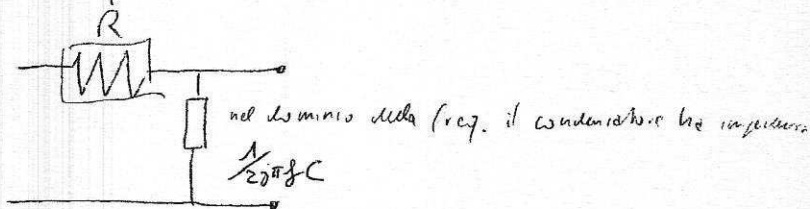 R
nel dominio della freq. il condensatore ha impedenza
1/2jπfC